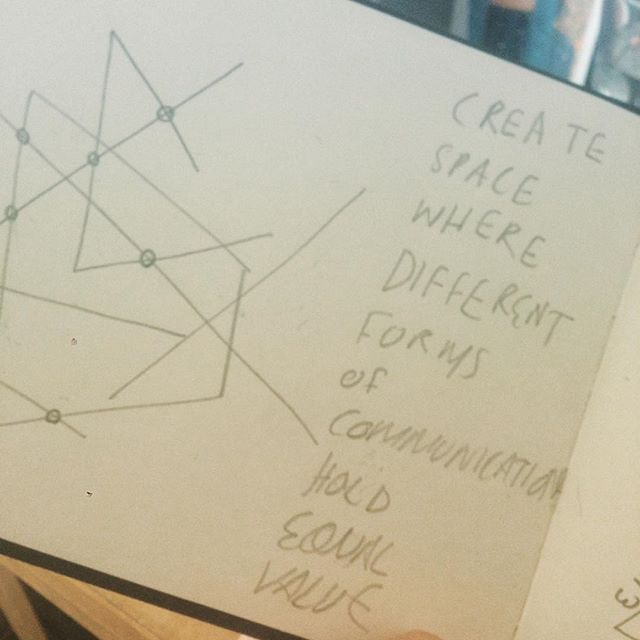 CREATE
SPACE
WHERE
DIFFERENT
FORMS
OF
COMMUNICATION
HOLD
EQUAL
VALUE